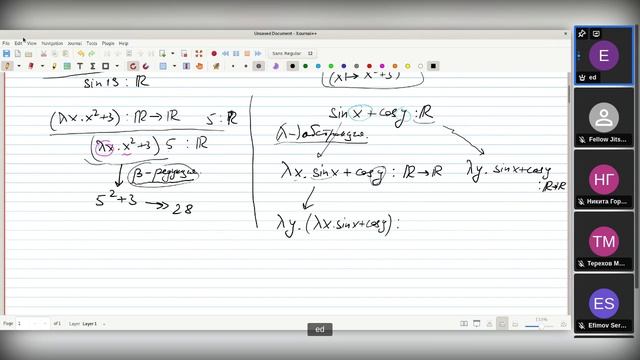 Unsaved Document - Xournal++
File Edit View Navigation Journal Tools Plugin Help
Sans Regular 12
sin 13 : ℝ
(x ↦ x²+3)
(λx. x²+3) : ℝ → ℝ 5 : ℝ
(λx. x²+3) 5 : ℝ
β-редукция
5²+3 ↠ 28
sin x + cos y : ℝ
(λ-) абстракция
λx. sin x + cos y : ℝ → ℝ
λy. sin x + cos y : ℝ → ℝ
λy. (λx. sin x + cos y) :
Page 1 of 1 Layer: Layer 1
ed
E
ed
Fellow Jits...
НГ
Никита Гор...
ТМ
Терехов М...
ES
Efimov Ser...